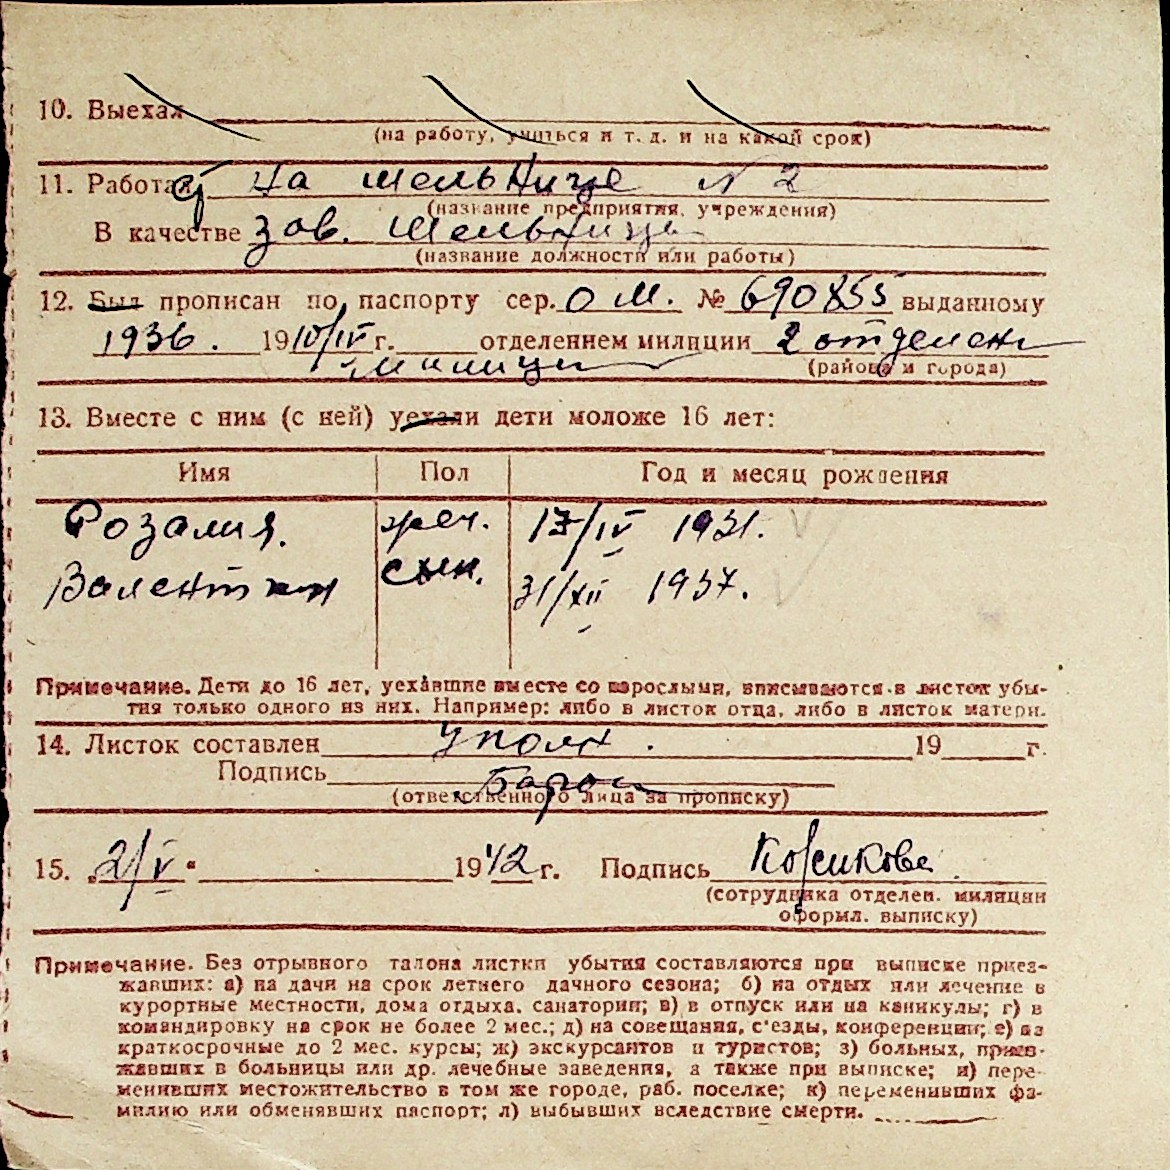 10. Выехал
(на работу, учиться и т. д. и на какой срок)
11. Работает на мельнице N 2
(название предприятия, учреждения)
В качестве зав. мельницы
(название должности или работы)
12. Был прописан по паспорту сер. О М. № 690855 выданному
1936. 1910/IV г. отделением милиции 2 отделен
милиции (района и города)
13. Вместе с ним (с ней) уехали дети моложе 16 лет:
Имя Пол Год и месяц рождения
Розалия. жен. 17/IV 1931.
Валентин сын. 31/XII 1937.
Примечание. Дети до 16 лет, уехавшие вместе со взрослыми, вписываются в листок убы-
тия только одного из них. Например: либо в листок отца, либо в листок матери.
14. Листок составлен уполн. 19 г.
Подпись
(ответственного лица за прописку)
15. „2/V“ 1942 г. Подпись
(сотрудника отделен. милиции
оформл. выписку)
Примечание. Без отрывного талона листки убытия составляются при выписке приез-
жавших: а) на дачи на срок летнего дачного сезона; б) на отдых или лечение в
курортные местности, дома отдыха, санатории; в) в отпуск или на каникулы; г) в
командировку на срок не более 2 мес.; д) на совещания, с'езды, конференции; е) на
краткосрочные до 2 мес. курсы; ж) экскурсантов и туристов; з) больных, приез-
жавших в больницы или др. лечебные заведения, а также при выписке; и) пере-
менивших местожительство в том же городе, раб. поселке; к) переменивших фа-
милию или обменявших паспорт; л) выбывших вследствие смерти.